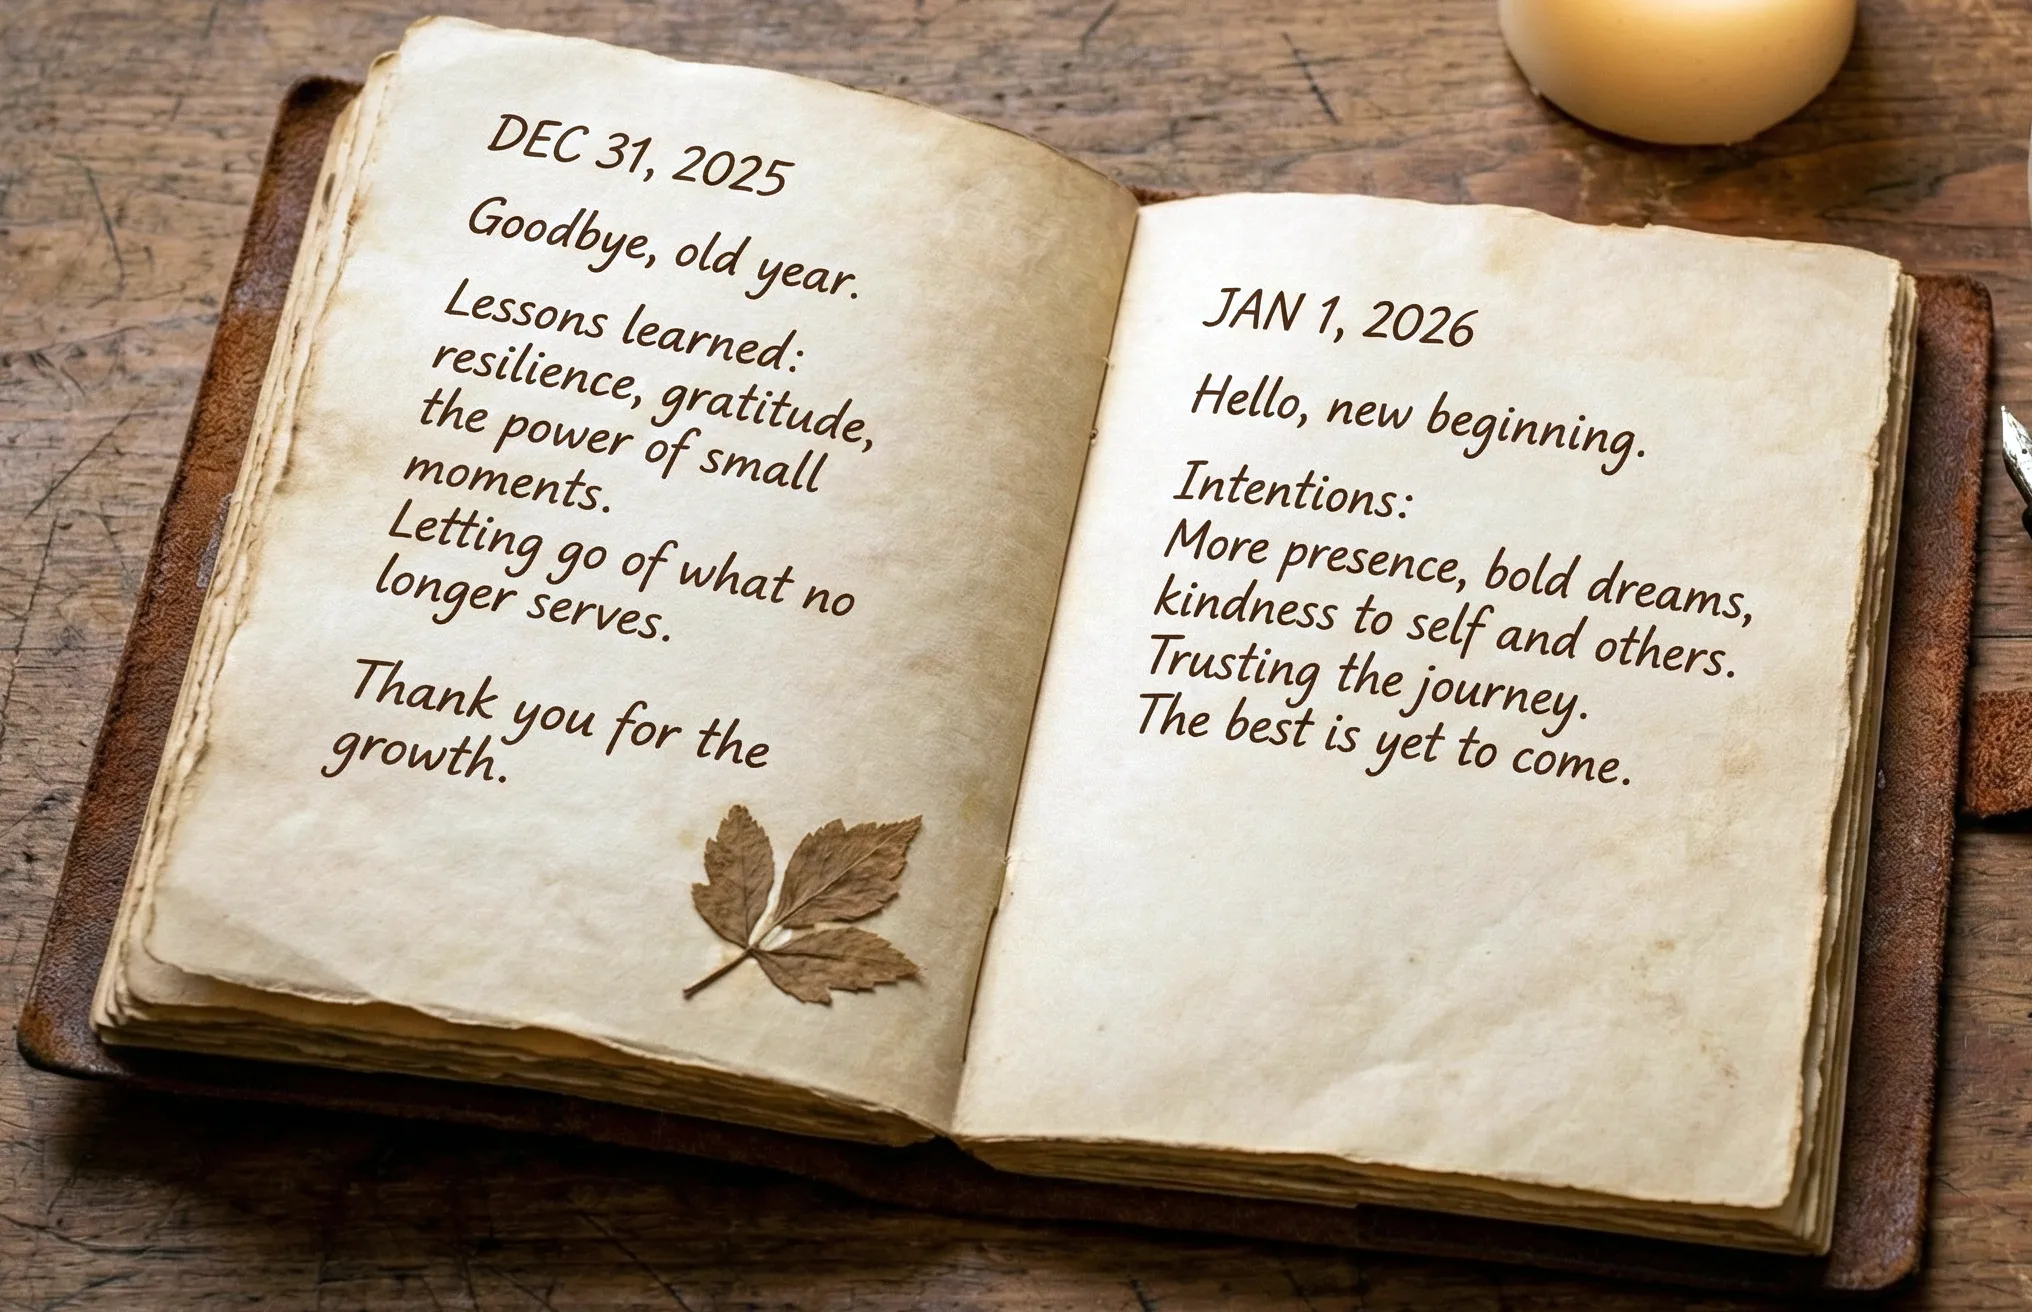 DEC 31, 2025
Goodbye, old year.
Lessons learned:
resilience, gratitude,
the power of small
moments.
Letting go of what no
longer serves.
Thank you for the
growth.
JAN 1, 2026
Hello, new beginning.
Intentions:
More presence, bold dreams,
kindness to self and others.
Trusting the journey.
The best is yet to come.